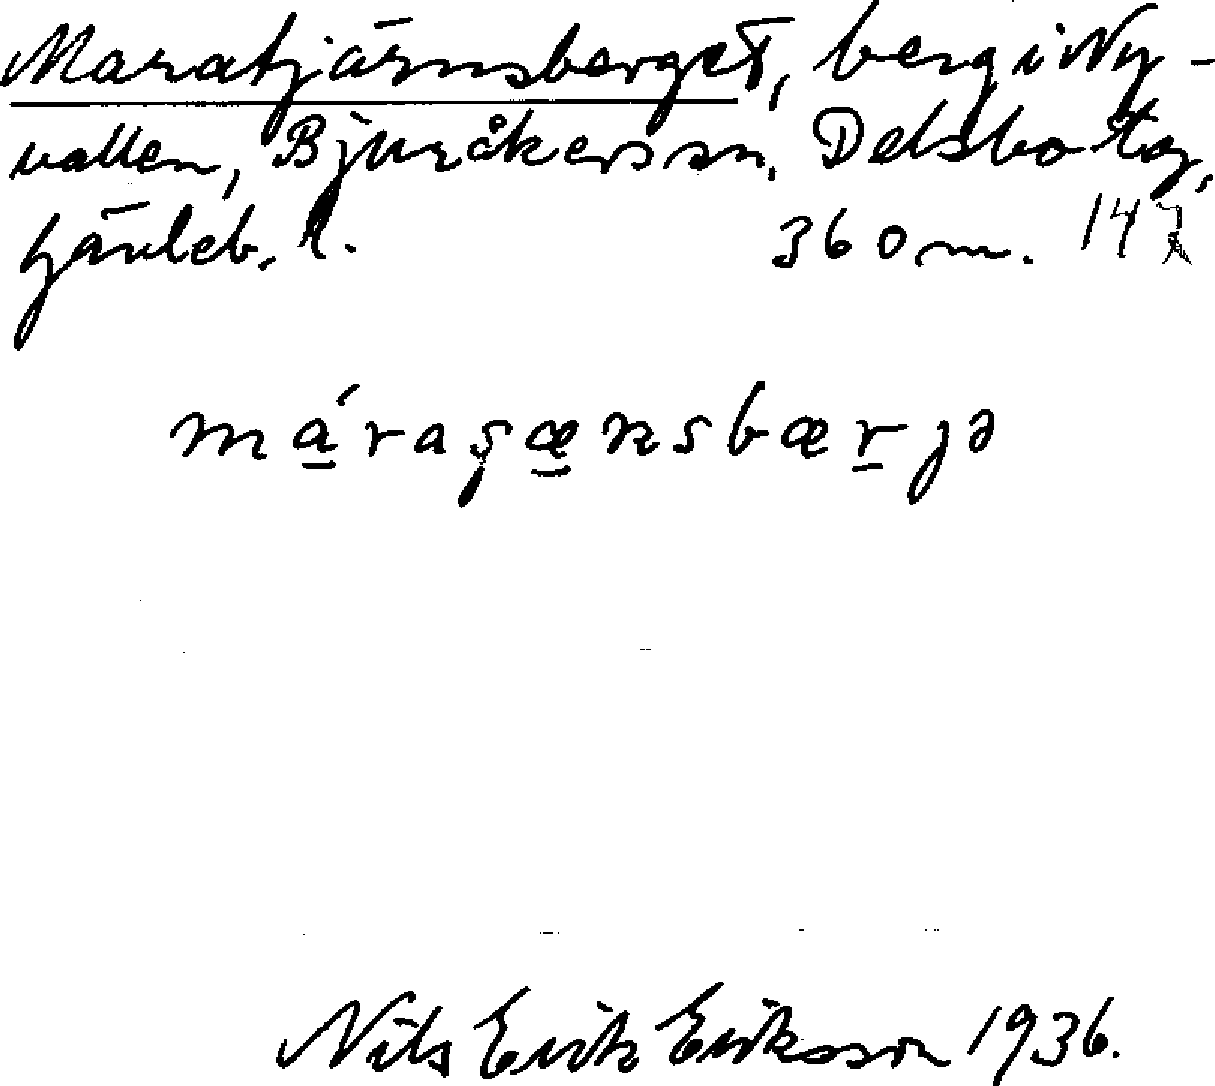 Maratjärnsberget, berg i Ny-
vallen, Bjuråkers sn, Delsbo tg,
Gävleb. l. 360 m. 14
máraʂænsbærjə
Nils Erik Eriksson 1936.